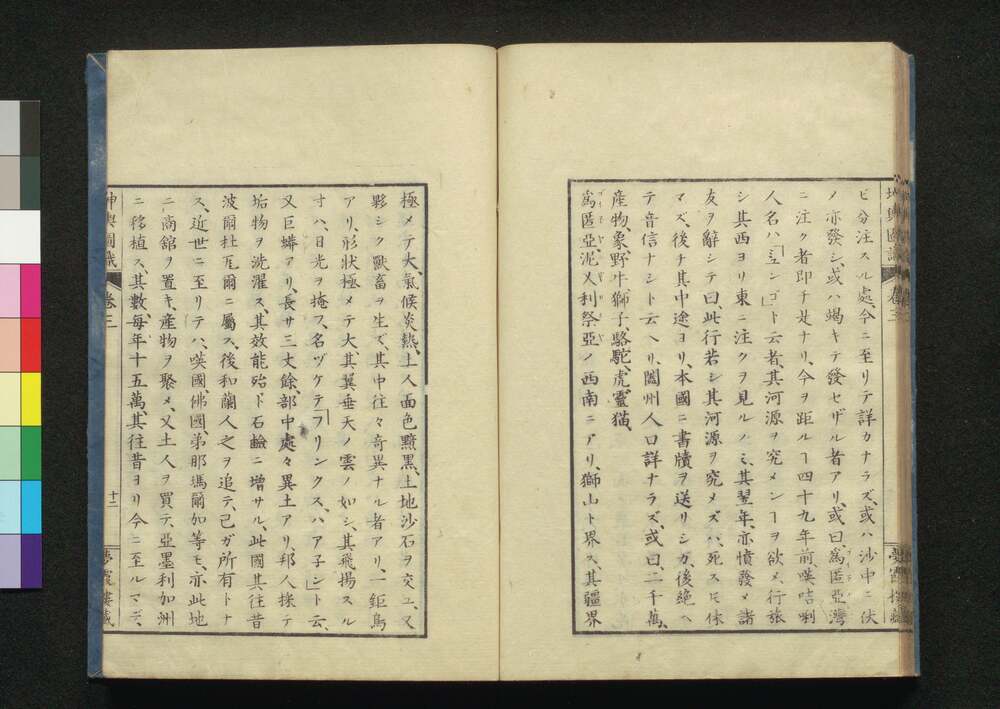 坤輿圖識
卷三
夢霞樓藏
ビ分注スル處、今ニ至リテ詳カナラズ、或ハ沙中ニ伏
ノ亦發シ、或ハ竭キテ發セザル者アリ、或曰爲匿亞灣
ニ注ク者即チ是ナリ、今ヲ距ルヿ四十九年前、嘆咭唎
人名ハ「ミュンゴ」ト云者、其河源ヲ究メンヿヲ欲メ、行旅
シ其西ヨリ東ニ注クヲ見ルノミ、其翌年、亦憤發メ諸
友ヲ辭シテ曰、此行若シ其河源ヲ究メズハ、死スㇳモ休
マズ、後チ其中途ヨリ、本國ニ書牘ヲ送リシガ、後絶ヘ
テ音信ナシト云ヘリ、闔州人口詳ナラズ、或曰、二千萬、
產物、象、野牛、獅子、駱駝、虎、靈猫、
爲匿亞、泥乂利祭亞ノ西南ニアリ、獅山ト界ス、其疆界
極メテ大、氣候炎熱、土人面色黧黒、土地沙石ヲ交ユ、又
夥シク獸畜ヲ生ズ、其中往々奇異ナル者アリ、一鉅鳥
アリ、形狀極メテ大、其翼垂天ノ雲ノ如シ、其飛揚スル
寸ハ、日光ヲ掩フ、名ヅケテ「フリンクス、ハア子シ」ト云、
又巨蟒アリ、長サ三丈餘、部中處々異土アリ、邦人採テ
垢物ヲ洗濯ス、其效能殆ド石鹼ニ增サル、此國其往昔
波爾杜瓦爾ニ屬ス、後和蘭人之ヲ追テ、己ガ所有トナ
ス、近世ニ至リテハ、嘆國、佛國、弟那瑪爾加等モ、亦此地
ニ商舘ヲ置キ、產物ヲ聚メ、又土人ヲ買テ、亞墨利加洲
ニ移植ス、其數、每年十五萬、其往昔ヨリ今ニ至ルマデ、
坤輿圖識
卷三
十二
夢霞樓藏